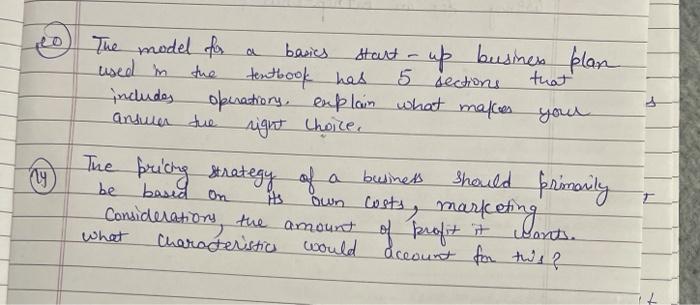 20 The model for a basics start-up business plan
used in the textbook has 5 sections that
includes operations. explain what makes your
answer the right choice.
14 The pricing strategy of a business should primarily
be based on its own costs, marketing
Considerations, the amount of profit it wants.
what characteristics would account for this?